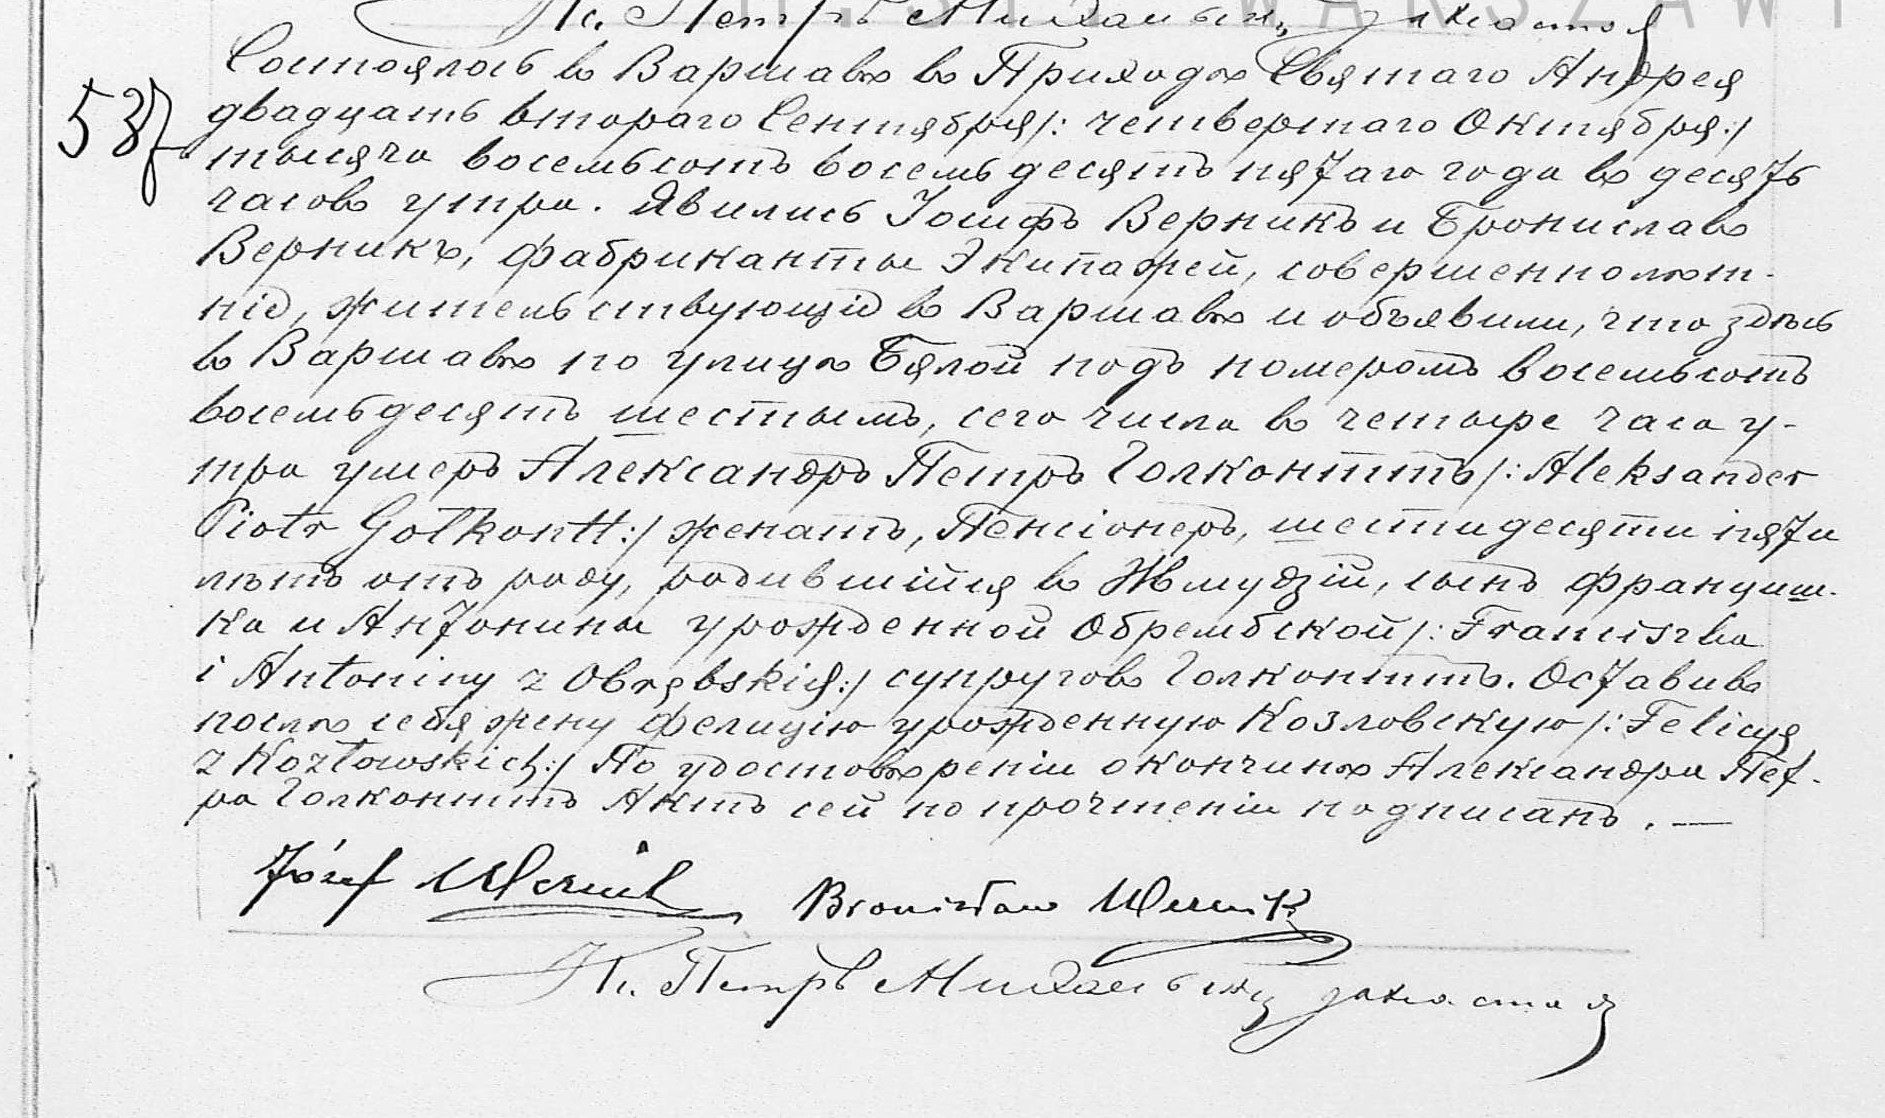 Кс. Петръ Михальскій
WARSZAWY
Состоялось въ Варшавѣ въ Приходѣ Святаго Андрея
537
двадцать втораго Сентября /: четвертаго Октября :/
тысяча восемьсотъ восемьдесятъ пятаго года въ десять
часовъ утра. Явились Іосифъ Верникъ и Брониславъ
Верникъ, фабриканты Экипажей, совершеннолѣт-
ніе, жительствующіе въ Варшавѣ и объявили, что здѣсь
въ Варшавѣ по улицѣ Бялой подъ номеромъ восемьсотъ
восемьдесятъ шестымъ, сего числа въ четыре часа у-
тра умеръ Александръ Петръ Голконттъ /: Aleksander
Piotr Gołkontt :/ женатъ, Пенсіонеръ, шестидесяти пяти
лѣтъ отъ роду, родившійся въ Жмудзій, сынъ Франциш-
ка и Антонины урожденной Обрембской /: Franciszka
i Antoniny z Obrębskich :/ супруговъ Голконттъ. Оставивъ
послѣ себя жену Фелицію урожденную Козловскую /: Felicyę
z Kozłowskich :/ По удостовѣреніи о кончинѣ Александра Пет-
ра Голконттъ Актъ сей по прочтеніи подписанъ. —
Józef Wernik Bronisław Wernik
Кс. Петръ Михальскій